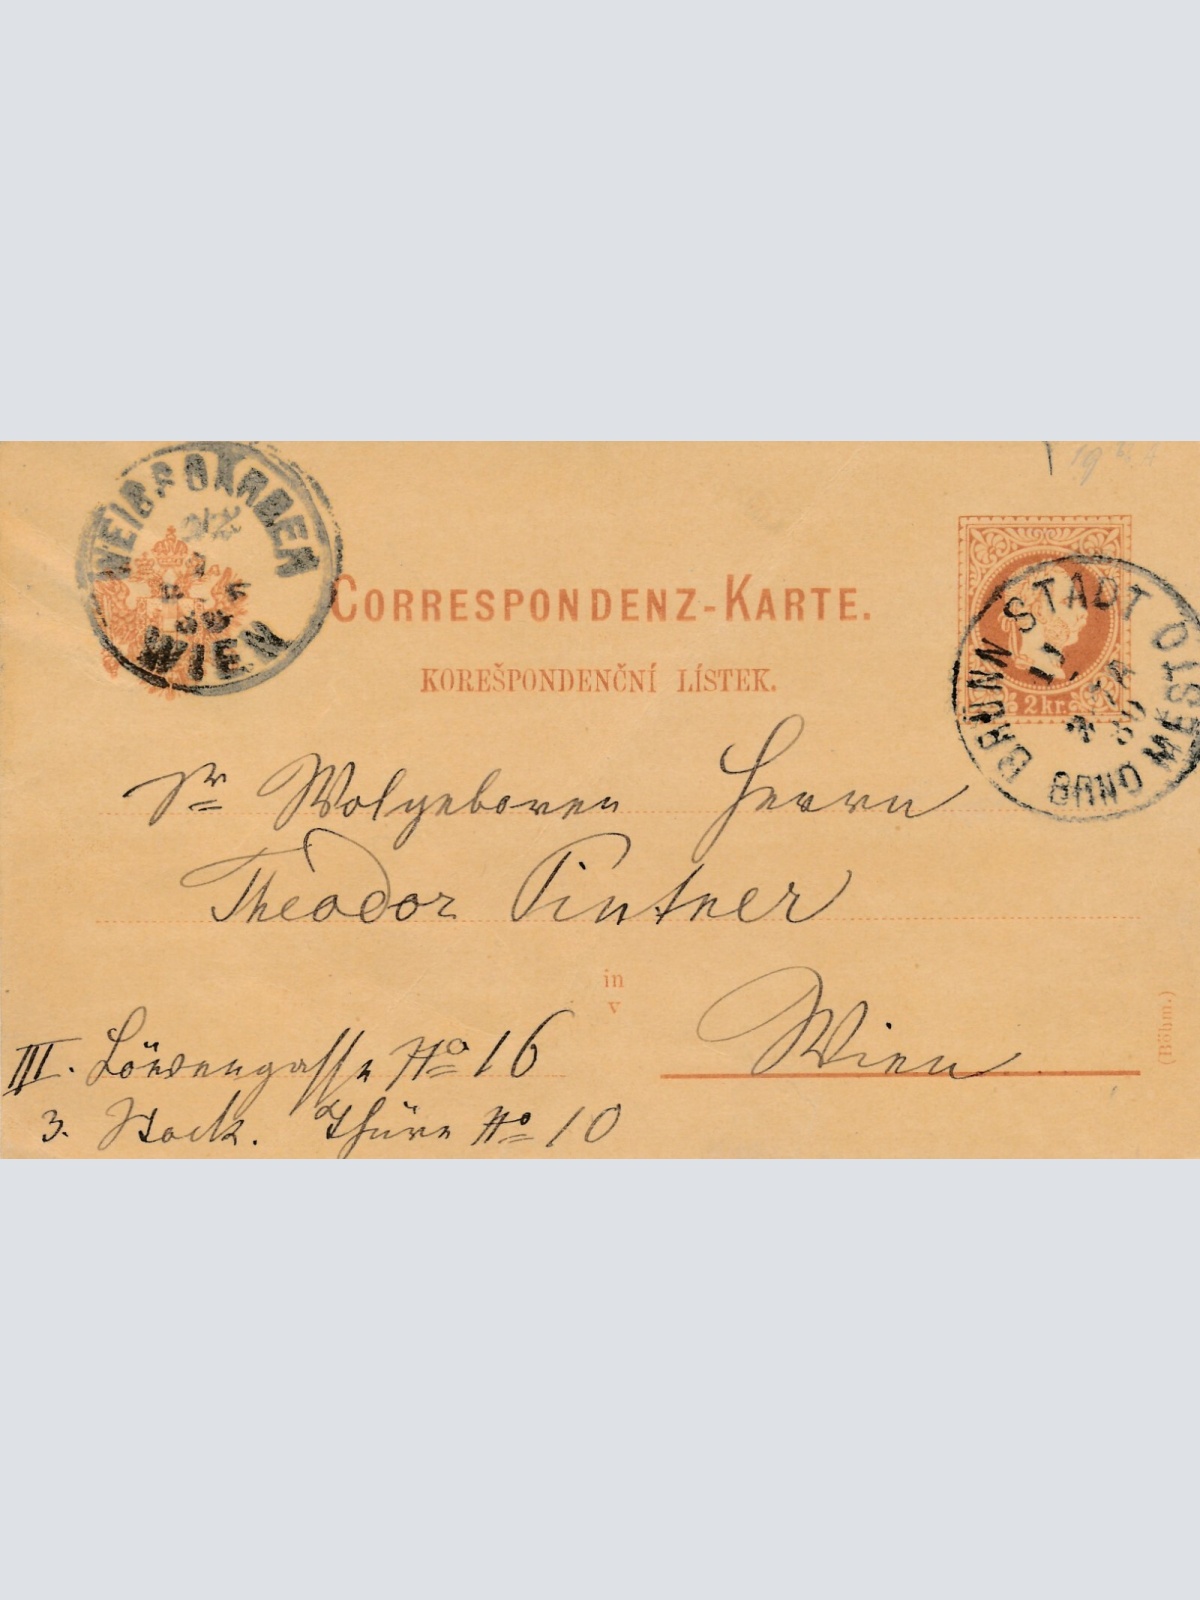 WEISSGÄRBER
WIEN
CORRESPONDENZ-KARTE.
KOREŠPONDENČNÍ LÍSTEK.
2 kr.
BRÜNN STADT
BRNO MĚSTO
Sr Wolgeboren Herrn
Theodor Pintner
in
v
Wien
III. Löwengasse No 16
3. Stock. Thüre No 10
(Böhm.)